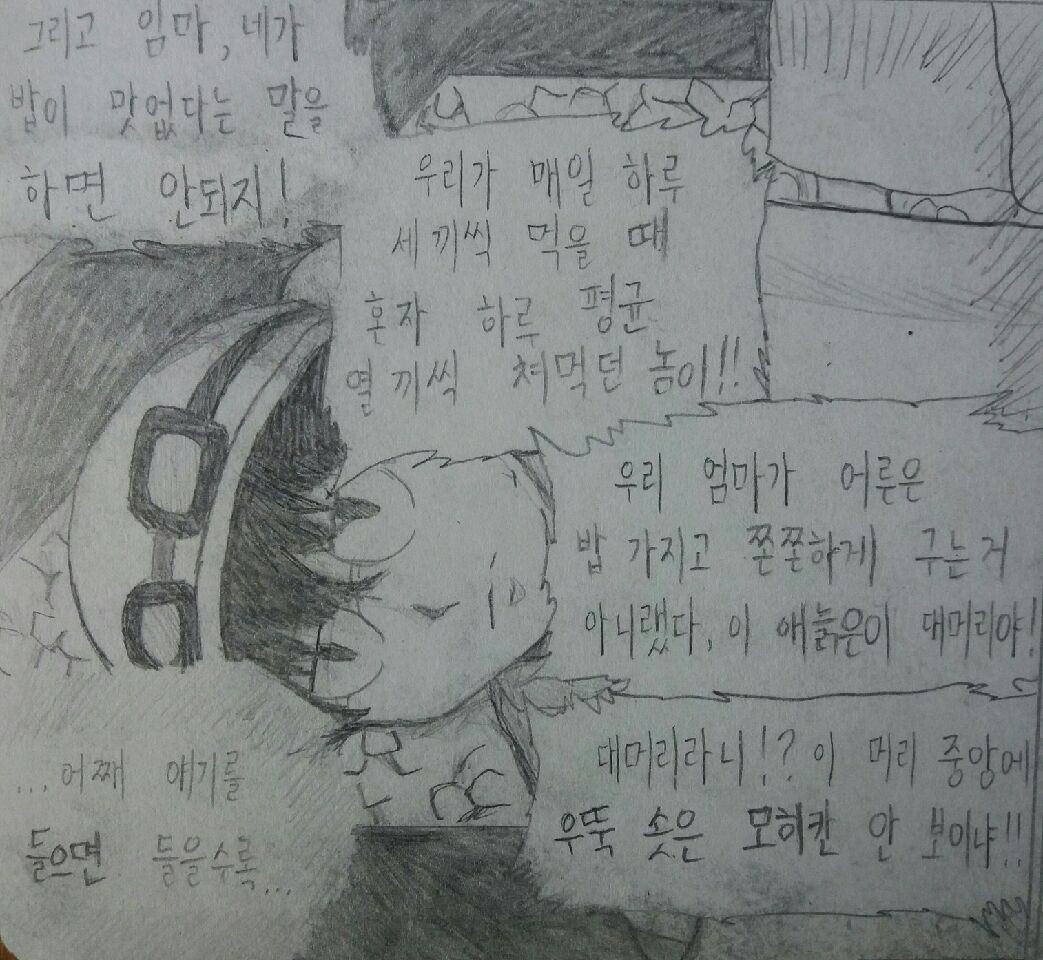 그리고 임마, 네가
밥이 맛없다는 말을
하면 안되지!
우리가 매일 하루
세끼씩 먹을 때
혼자 하루 평균
열끼씩 쳐먹던 놈이!!
우리 엄마가 어른은
밥 가지고 쫀쫀하게 구는거
아니랬다, 이 애늙은이 대머리야!
대머리라니!? 이 머리 중앙에
우뚝 솟은 모히칸 안 보이냐!!
...어째 얘기를
들으면 들을수록...